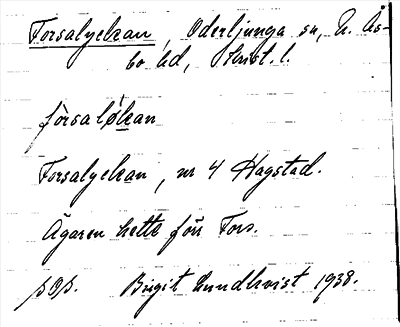 Forsalyckan, Oderljunga sn, N. Ås-
bo hd, Krist. l.
fòrsaló̀kan
Forsalyckan, nr 4 Hagstad.
Ägaren hette förr Fors.
Birgit Lundkvist 1938.